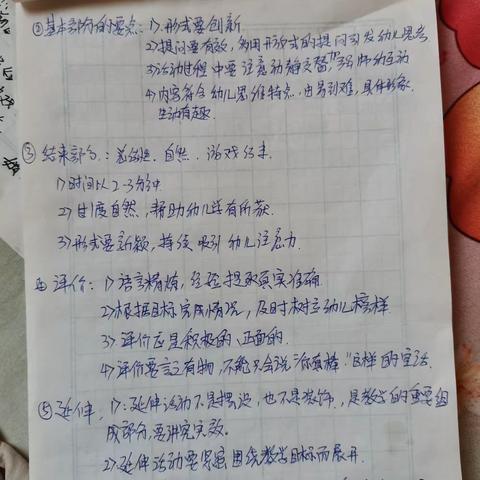 ②基本部分的要点: 1>.形式要创新
2>提问要有效,多用开放式的提问引发幼儿思考
3>活动过程中要注意动静交替,加强师幼互动
4>内容符合幼儿思维特点,由易到难,具体形象
生动有趣.
③结束部分:总结性.自然.游戏结束.
1>时间以2-3分钟
2>过度自然,帮助幼儿学有所获.
3>形式要新颖,持续吸引幼儿注意力.
④评价: 1>语言精炼,经验提取真实准确
2>根据目标完成情况,及时树立幼儿榜样
3>评价应是积极的、正面的.
4>评价要言之有物,不能只会说"你真棒"这样的空话.
⑤延伸, 1>:延伸活动不是摆设,也不是装饰,是教学的重要组
成部分,要讲究实效。
2>延伸活动要紧密围绕教学目标而展开.